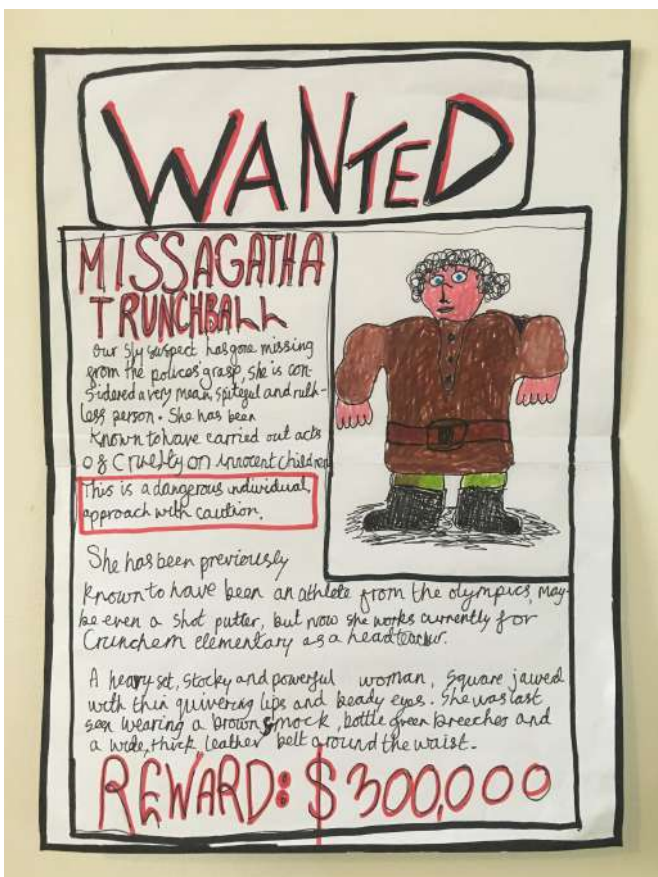 WANTED
MISS AGATHA
TRUNCHBALL
Our sly suspect has gone missing
from the polices grasp, she is con-
sidered a very mean, spiteful and ruth-
less person. She has been
known to have carried out acts
of Cruelty on innocent children
This is a dangerous individual,
approach with caution.
She has been previously
known to have been an athlete from the olympics, may-
be even a shot putter, but now she works currently for
Crunchem elementary as a headteacher.
A heavy set, stocky and powerful woman, square jawed
with thin quivering lips and beady eyes. She was last
seen wearing a brown smock, bottle green breeches and
a wide, thick leather belt around the waist.
REWARD: $300,000